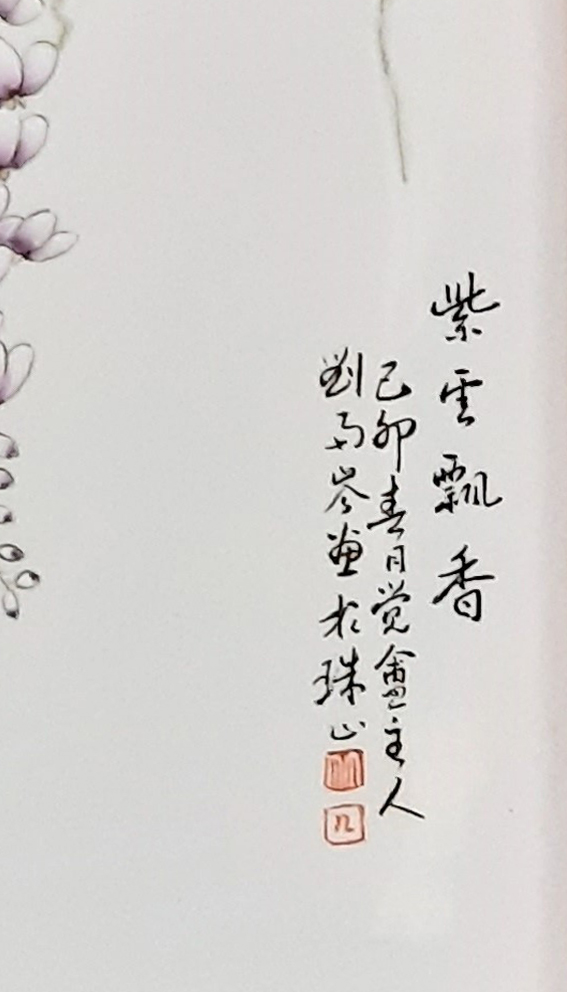 紫雲飘香
己卯春月觉盦主人
劉雨岑画於珠山